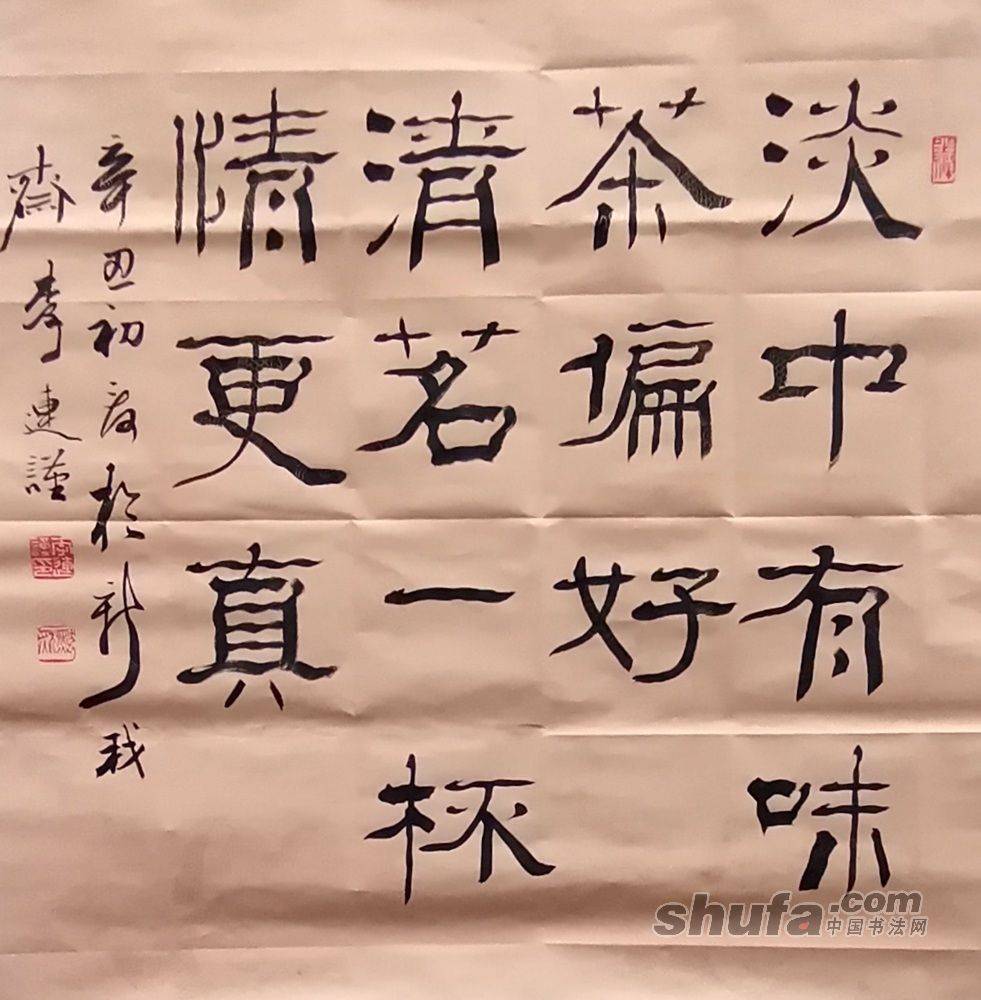 淡中有味
茶偏好
清茗一杯
情更真
辛丑初夏於新我
齋 連謹
shufa.com
中国书法网